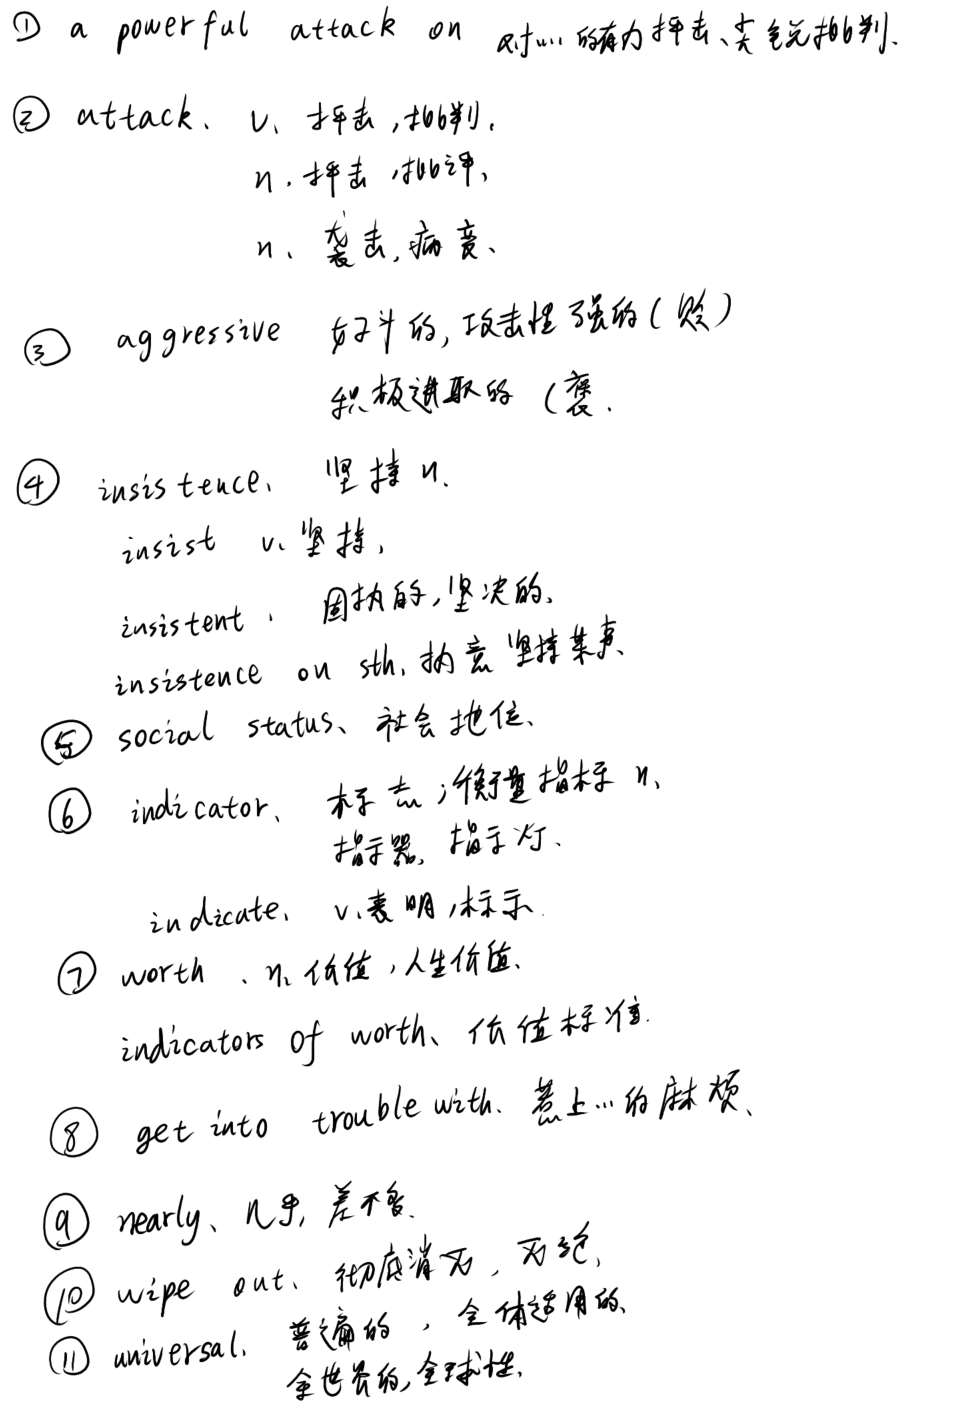 ① a powerful attack on 对…的有力抨击、尖锐批判.
② attack、 v、抨击,批判.
n. 抨击,批评、
n、袭击,病变、
③ aggressive 好斗的,攻击性强的(贬)
积极进取的 (褒.
④ insistence、 坚持 n.
insist v、坚持,
insistent、 固执的,坚决的、
insistence on sth. 执意坚持某事、
⑤ social status、社会地位、
⑥ indicator、 标志;衡量指标 n、
指示器,指示灯、
indicate、 v、表明,标示.
⑦ worth 、n、价值,人生价值、
indicators of worth、价值标准.
⑧ get into trouble with. 惹上…的麻烦、
⑨ nearly、几乎,差不多.
⑩ wipe out、彻底消灭,灭绝,
⑪ universal、普遍的,全体适用的、
全世界的,全球性,